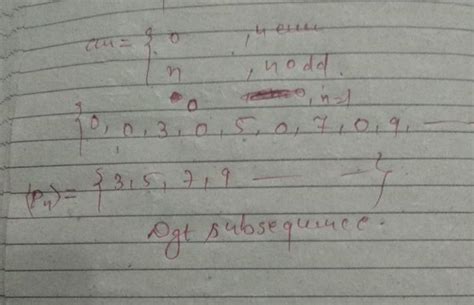 an = { 0 , n even
n , n odd
0 , n=1
{ 0, 0, 3, 0, 5, 0, 7, 0, 9, —
(Pn) = { 3, 5, 7, 9 — — }
Dgt subsequence.